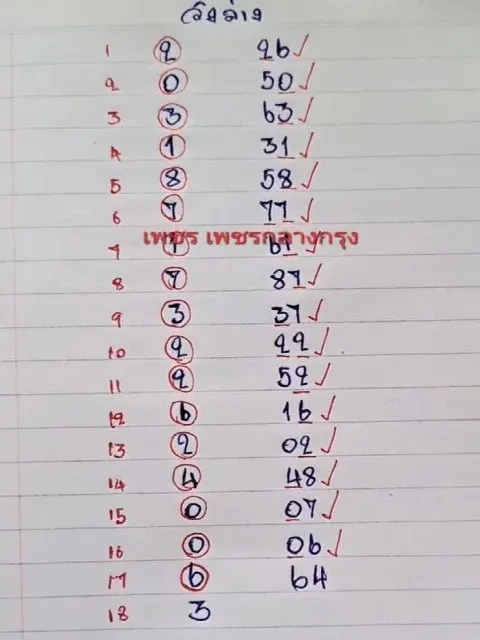 วิ่งล่าง
1 2 26 ✓
2 0 50 ✓
3 3 63 ✓
4 1 31 ✓
5 8 58 ✓
6 7 77 ✓
เพชร เพชรกลางกรุง
7 1 61 ✓
8 7 87 ✓
9 3 37 ✓
10 2 22 ✓
11 2 52 ✓
12 6 16 ✓
13 2 02 ✓
14 4 48 ✓
15 0 07 ✓
16 0 06 ✓
17 6 64
18 3